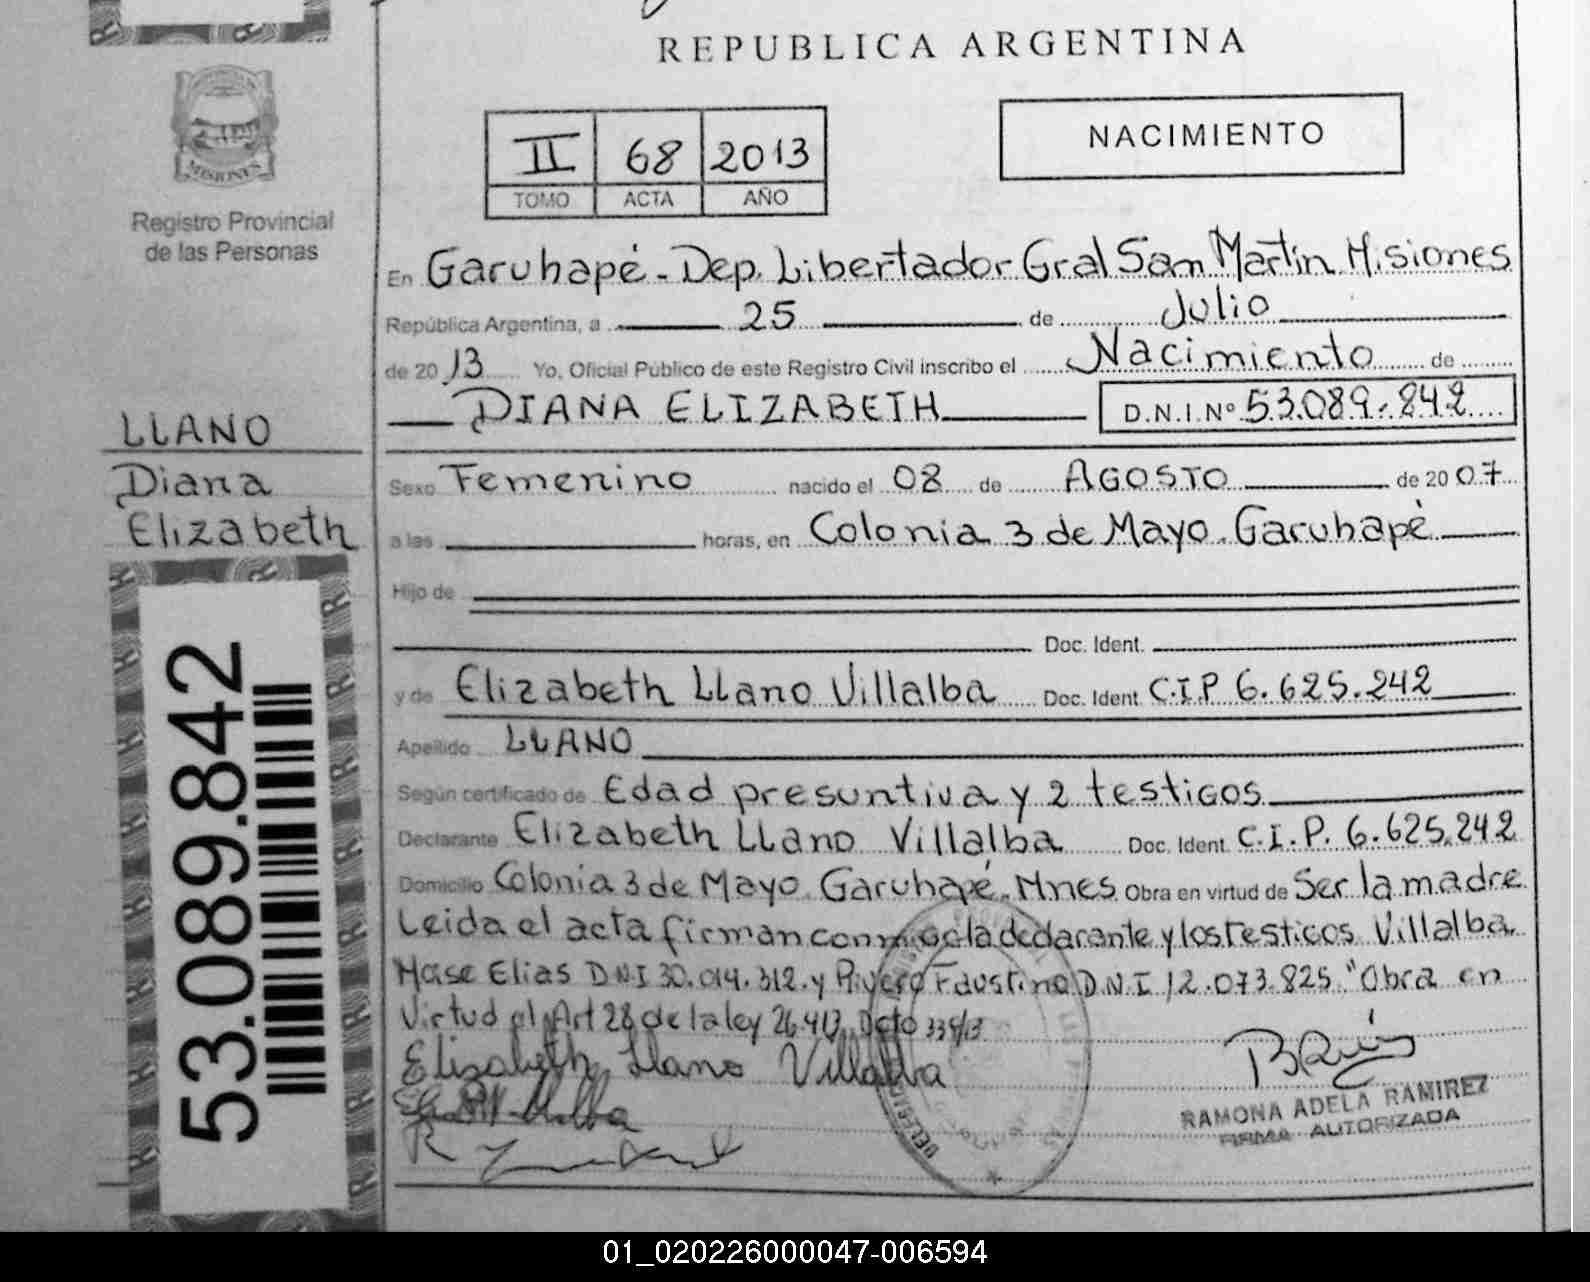 REPUBLICA ARGENTINA
II 68 2013
TOMO ACTA AÑO
NACIMIENTO
MISIONES
Registro Provincial
de las Personas
LLANO
Diana
Elizabeth
53.089.842
En Garuhapé - Dep. Libertador Gral San Martin Misiones
República Argentina, a 25 de Julio
de 2013 Yo, Oficial Público de este Registro Civil inscribo el Nacimiento de
DIANA ELIZABETH D.N.I.Nº 53.089.842
Sexo Femenino nacido el 08 de AGOSTO de 2007
a las horas, en Colonia 3 de Mayo. Garuhapé
Hijo de
Doc. Ident.
y de Elizabeth Llano Villalba Doc. Ident. C.I.P 6.625.242
Apellido LLANO
Según certificado de Edad presuntiva y 2 testigos
Declarante Elizabeth Llano Villalba Doc. Ident. C.I.P. 6.625.242
Domicilio Colonia 3 de Mayo. Garuhapé. Mnes Obra en virtud de Ser la madre
Leida el acta firman conmigo la declarante y los testigos Villalba
Mase Elias D.N.I 30.014.312. y Rivero Faustino D.N.I 12.073.825 "Obra en
Virtud al Art 28 de la ley 26.413, Dcto 339/13
Elizabeth Llano Villalba
RAMONA ADELA RAMIREZ
FIRMA AUTORIZADA
01_020226000047-006594